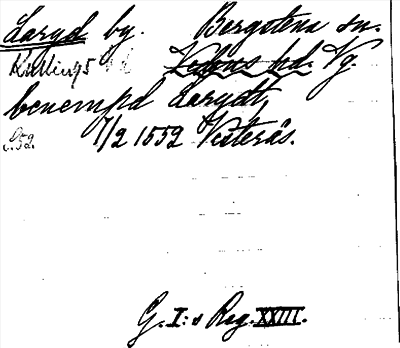 Laryd by. Bergstena sn.
Kullings hd Vedens hd. Vg.
benempd Larydt,
17/2 1552 Vesterås.
G. I:s Reg. XXIII.